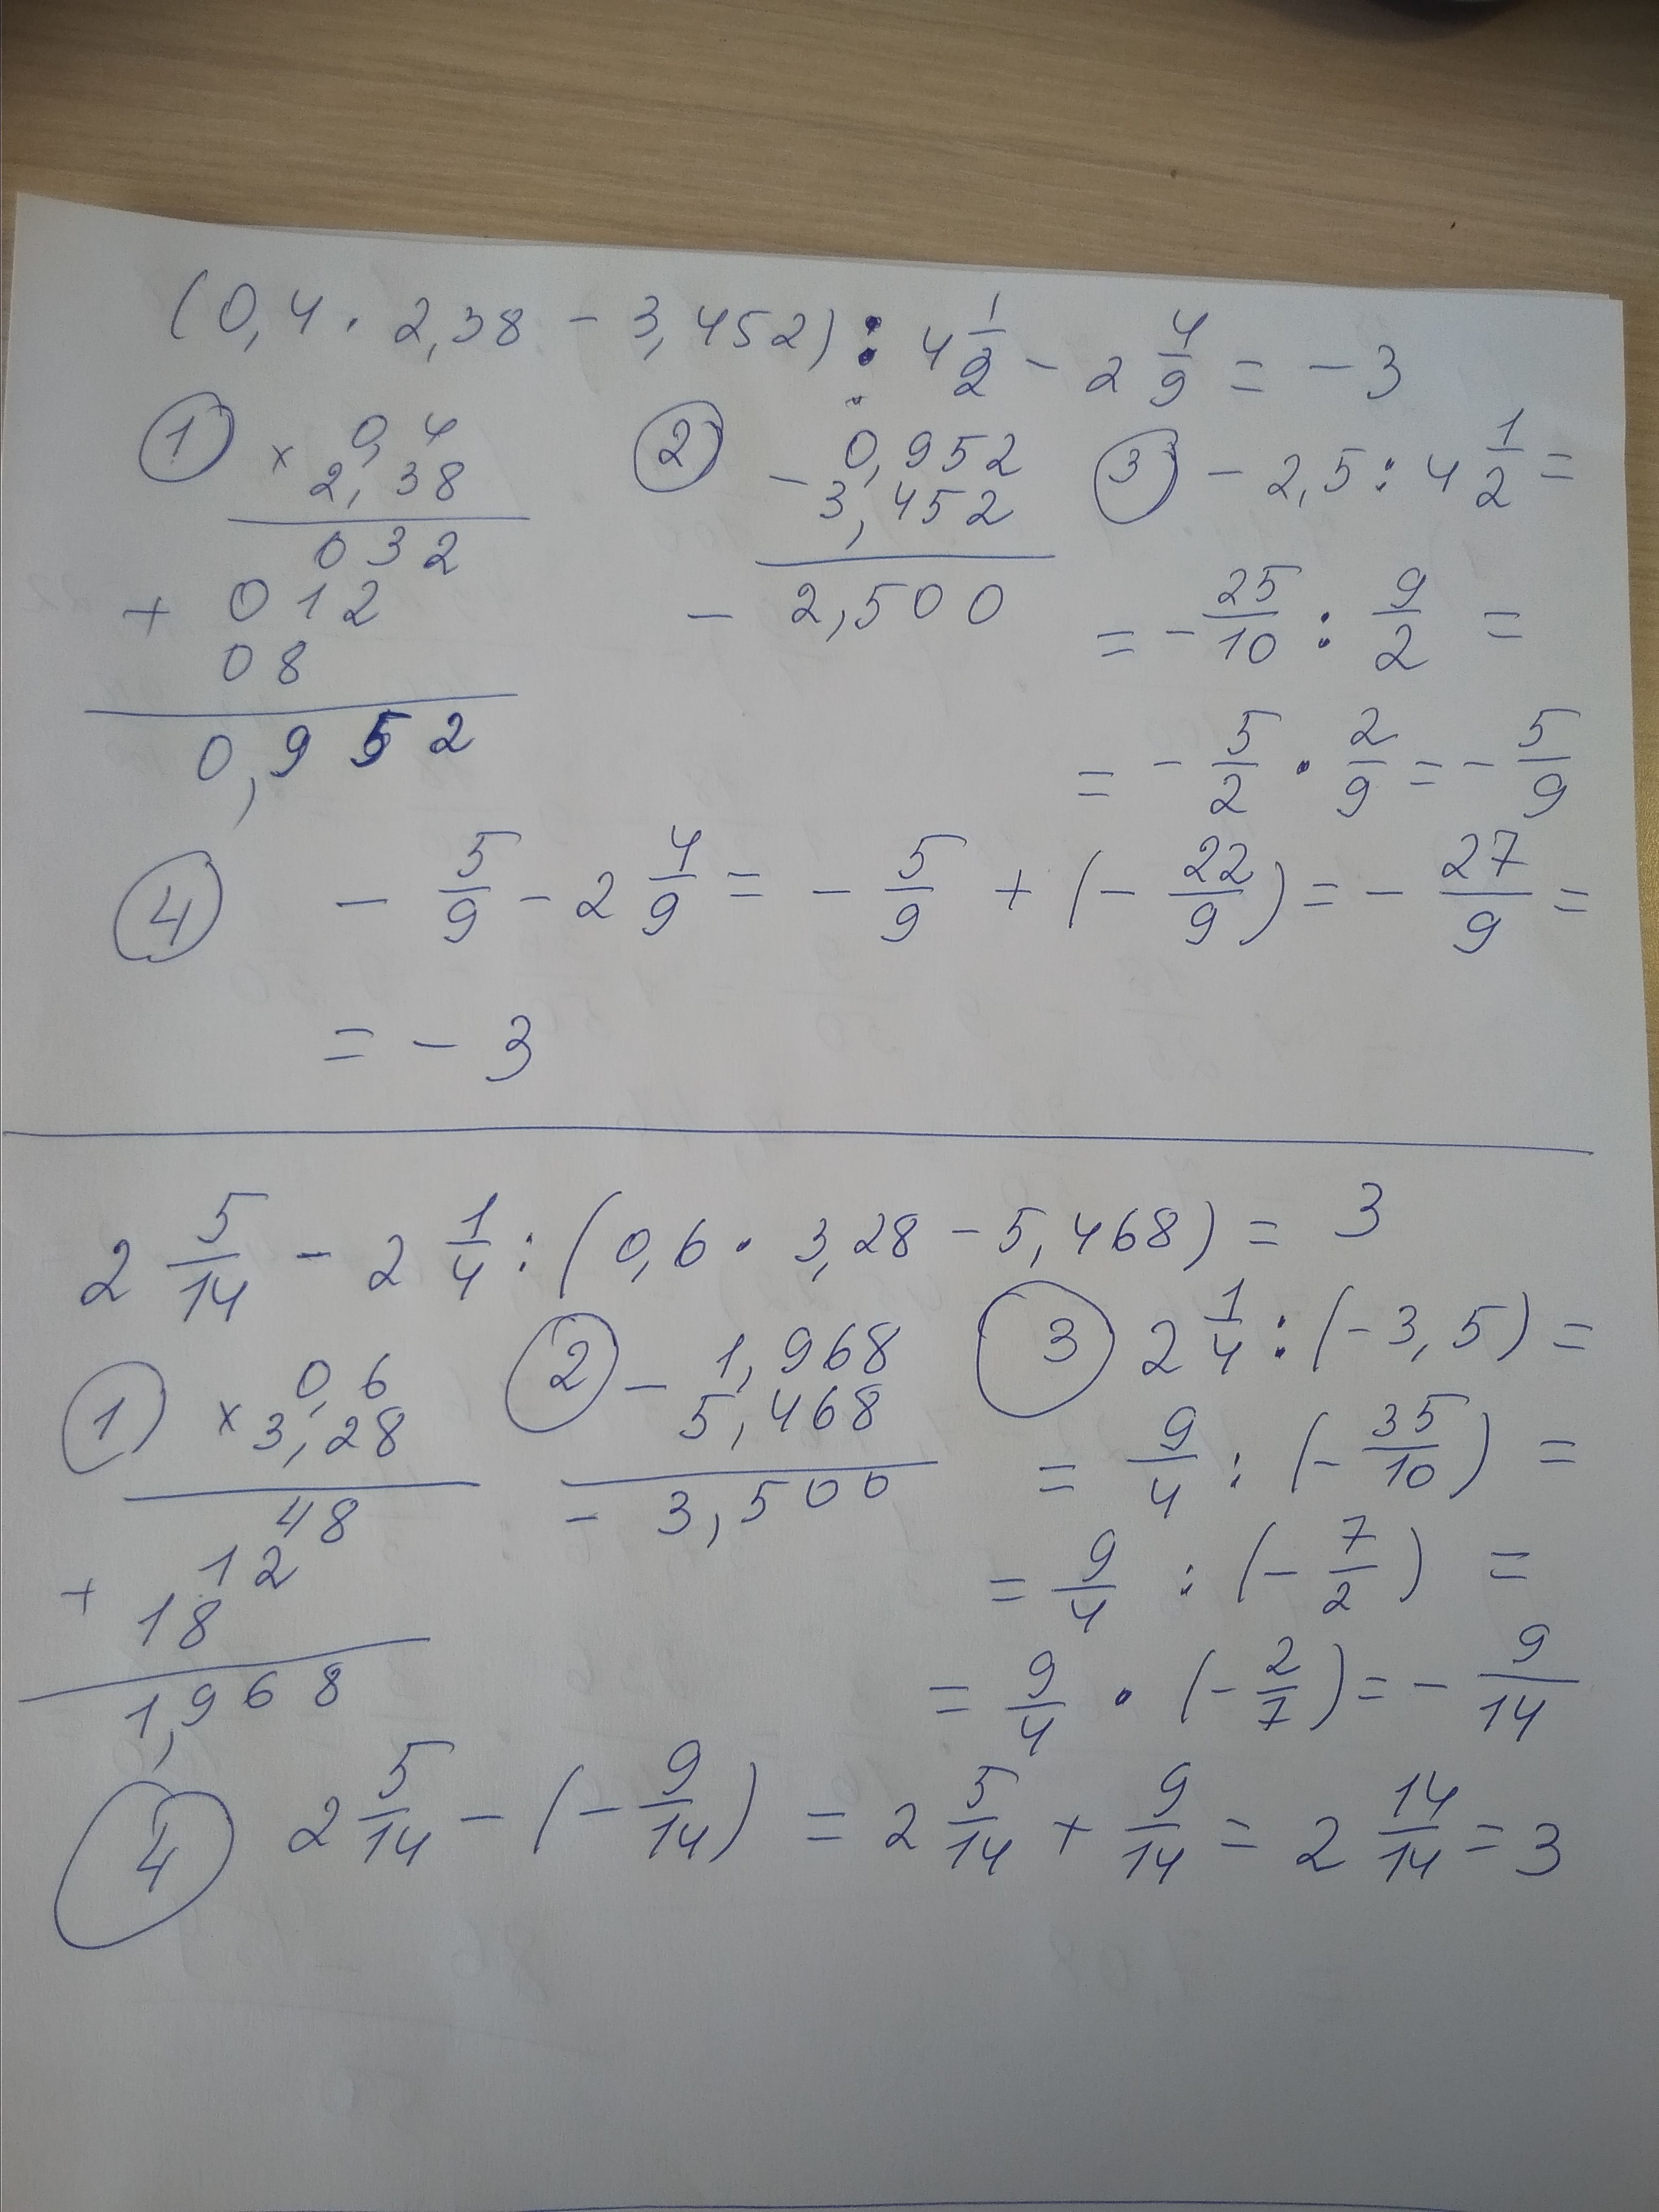 (0,4 · 2,38 - 3,452) : 4 1/2 - 2 4/9 = -3
① × 0,4
2,38
032
+ 012
08
0,952
② - 0,952
3,452
- 2,500
③ - 2,5 : 4 1/2 =
= - 25/10 : 9/2 =
= - 5/2 · 2/9 = - 5/9
④ - 5/9 - 2 4/9 = - 5/9 + (- 22/9) = - 27/9 =
= - 3
2 5/14 - 2 1/4 : (0,6 · 3,28 - 5,468) = 3
① × 0,6
3,28
48
+ 12
18
1,968
② - 1,968
5,468
- 3,500
③ 2 1/4 : (-3,5) =
= 9/4 : (- 35/10) =
= 9/4 : (- 7/2) =
= 9/4 · (- 2/7) = - 9/14
④ 2 5/14 - (- 9/14) = 2 5/14 + 9/14 = 2 14/14 = 3